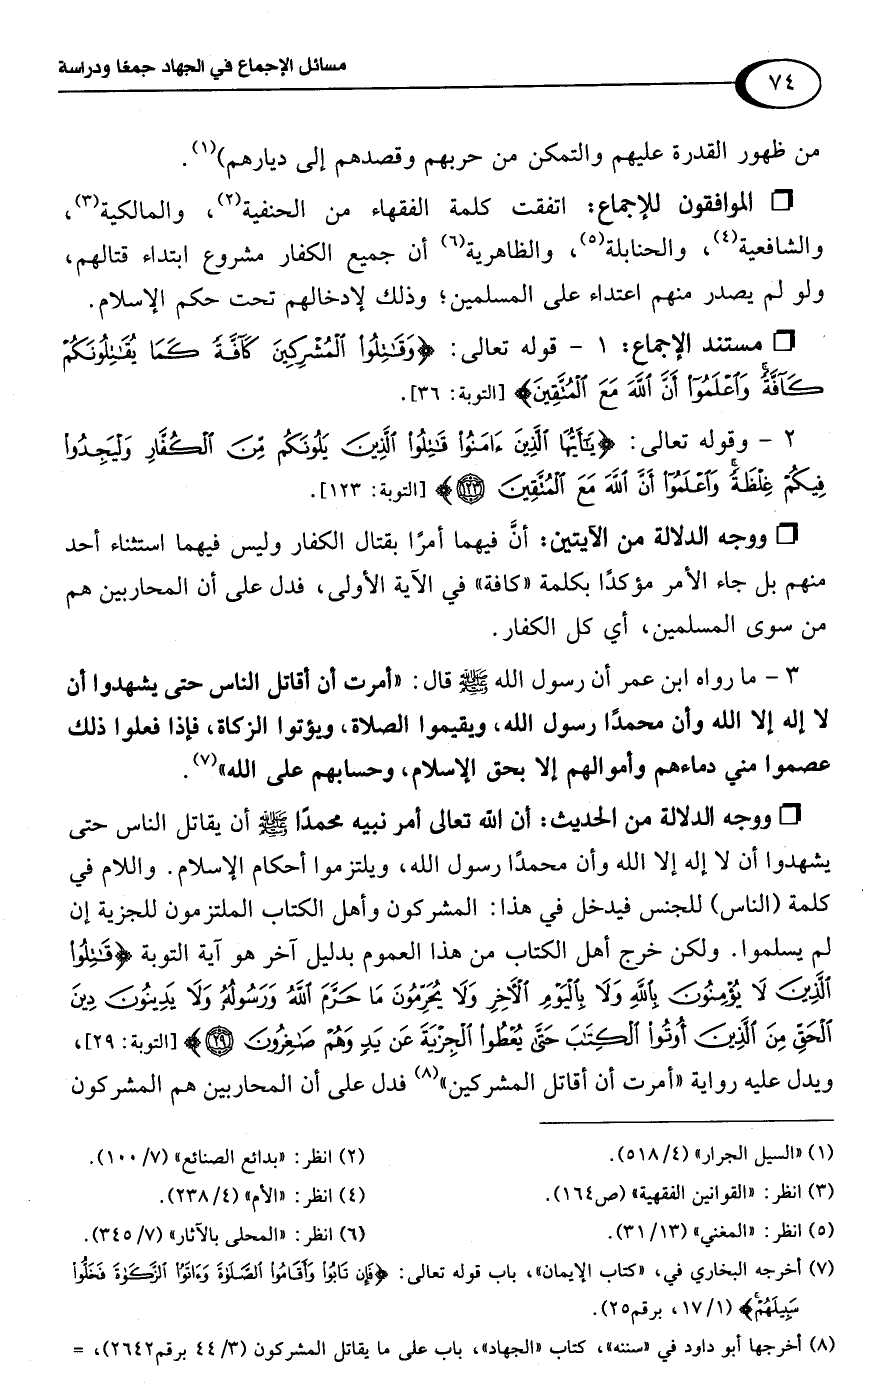 مسائل الإجماع في الجهاد جمعًا ودراسة
٧٤
من ظهور القدرة عليهم والتمكن من حربهم وقصدهم إلى ديارهم)(١).
❒ الموافقون للإجماع: اتفقت كلمة الفقهاء من الحنفية(٢)، والمالكية(٣)،
والشافعية(٤)، والحنابلة(٥)، والظاهرية(٦) أن جميع الكفار مشروع ابتداء قتالهم،
ولو لم يصدر منهم اعتداء على المسلمين؛ وذلك لإدخالهم تحت حكم الإسلام.
❒ مستند الإجماع: ١ - قوله تعالى: ﴿وَقَٰتِلُوا۟ ٱلْمُشْرِكِينَ كَآفَّةً كَمَا يُقَٰتِلُونَكُمْ
كَآفَّةً ۚ وَٱعْلَمُوٓا۟ أَنَّ ٱللَّهَ مَعَ ٱلْمُتَّقِينَ﴾ [التوبة: ٣٦].
٢ - وقوله تعالى: ﴿يَٰٓأَيُّهَا ٱلَّذِينَ ءَامَنُوا۟ قَٰتِلُوا۟ ٱلَّذِينَ يَلُونَكُم مِّنَ ٱلْكُفَّارِ وَلْيَجِدُوا۟
فِيكُمْ غِلْظَةً ۚ وَٱعْلَمُوٓا۟ أَنَّ ٱللَّهَ مَعَ ٱلْمُتَّقِينَ ١٢٣﴾ [التوبة: ١٢٣].
❒ ووجه الدلالة من الآيتين: أنَّ فيهما أمرًا بقتال الكفار وليس فيهما استثناء أحد
منهم بل جاء الأمر مؤكدًا بكلمة «كافة» في الآية الأولى، فدل على أن المحاربين هم
من سوى المسلمين، أي كل الكفار.
٣ - ما رواه ابن عمر أن رسول الله ﷺ قال: «أمرت أن أقاتل الناس حتى يشهدوا أن
لا إله إلا الله وأن محمدًا رسول الله، ويقيموا الصلاة، ويؤتوا الزكاة، فإذا فعلوا ذلك
عصموا مني دماءهم وأموالهم إلا بحق الإسلام، وحسابهم على الله»(٧).
❒ ووجه الدلالة من الحديث: أن الله تعالى أمر نبيه محمدًا ﷺ أن يقاتل الناس حتى
يشهدوا أن لا إله إلا الله وأن محمدًا رسول الله، ويلتزموا أحكام الإسلام. واللام في
كلمة (الناس) للجنس فيدخل في هذا: المشركون وأهل الكتاب الملتزمون للجزية إن
لم يسلموا. ولكن خرج أهل الكتاب من هذا العموم بدليل آخر هو آية التوبة ﴿قَٰتِلُوا۟
ٱلَّذِينَ لَا يُؤْمِنُونَ بِٱللَّهِ وَلَا بِٱلْيَوْمِ ٱلْءَاخِرِ وَلَا يُحَرِّمُونَ مَا حَرَّمَ ٱللَّهُ وَرَسُولُهُۥ وَلَا يَدِينُونَ دِينَ
ٱلْحَقِّ مِنَ ٱلَّذِينَ أُوتُوا۟ ٱلْكِتَٰبَ حَتَّىٰ يُعْطُوا۟ ٱلْجِزْيَةَ عَن يَدٍ وَهُمْ صَٰغِرُونَ ٢٩﴾ [التوبة: ٢٩]،
ويدل عليه رواية «أمرت أن أقاتل المشركين»(٨) فدل على أن المحاربين هم المشركون
(١) «السيل الجرار» (٥١٨/٤). (٢) انظر: «بدائع الصنائع» (١٠٠/٧).
(٣) انظر: «القوانين الفقهية» (ص١٦٤). (٤) انظر: «الأم» (٢٣٨/٤).
(٥) انظر: «المغني» (٣١/١٣). (٦) انظر: «المحلى بالآثار» (٣٤٥/٧).
(٧) أخرجه البخاري في، «كتاب الإيمان»، باب قوله تعالى: ﴿فَإِن تَابُوا۟ وَأَقَامُوا۟ ٱلصَّلَوٰةَ وَءَاتَوُا۟ ٱلزَّكَوٰةَ فَخَلُّوا۟
سَبِيلَهُمْ ۚ﴾ (١٧/١، برقم٢٥).
(٨) أخرجها أبو داود في «سننه»، كتاب «الجهاد»، باب على ما يقاتل المشركون (٤٤/٣ برقم٢٦٤٢)، =